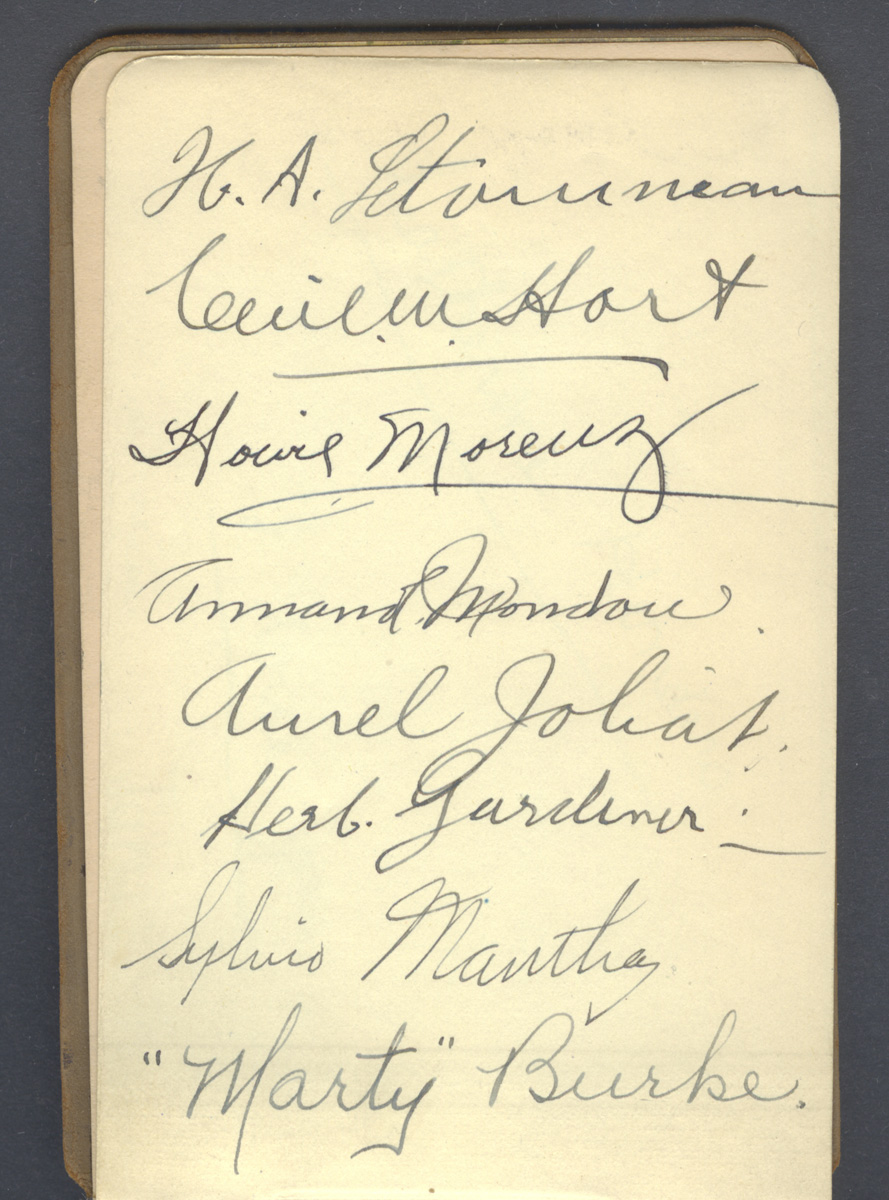 H. A. Letourneau
Cecil. M. Hart
Howie Morenz
Armand Mondou
Aurel Joliat.
Herb. Gardiner
Sylvio Mantha
"Marty" Burke.